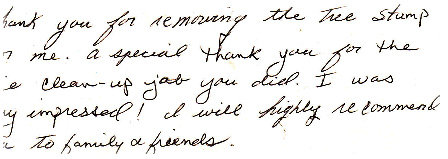 hank you for removing the tree stump
r me. A special thank you for the
e clean-up job you did. I was
ry impressed! I will highly recommend
u to family & friends.